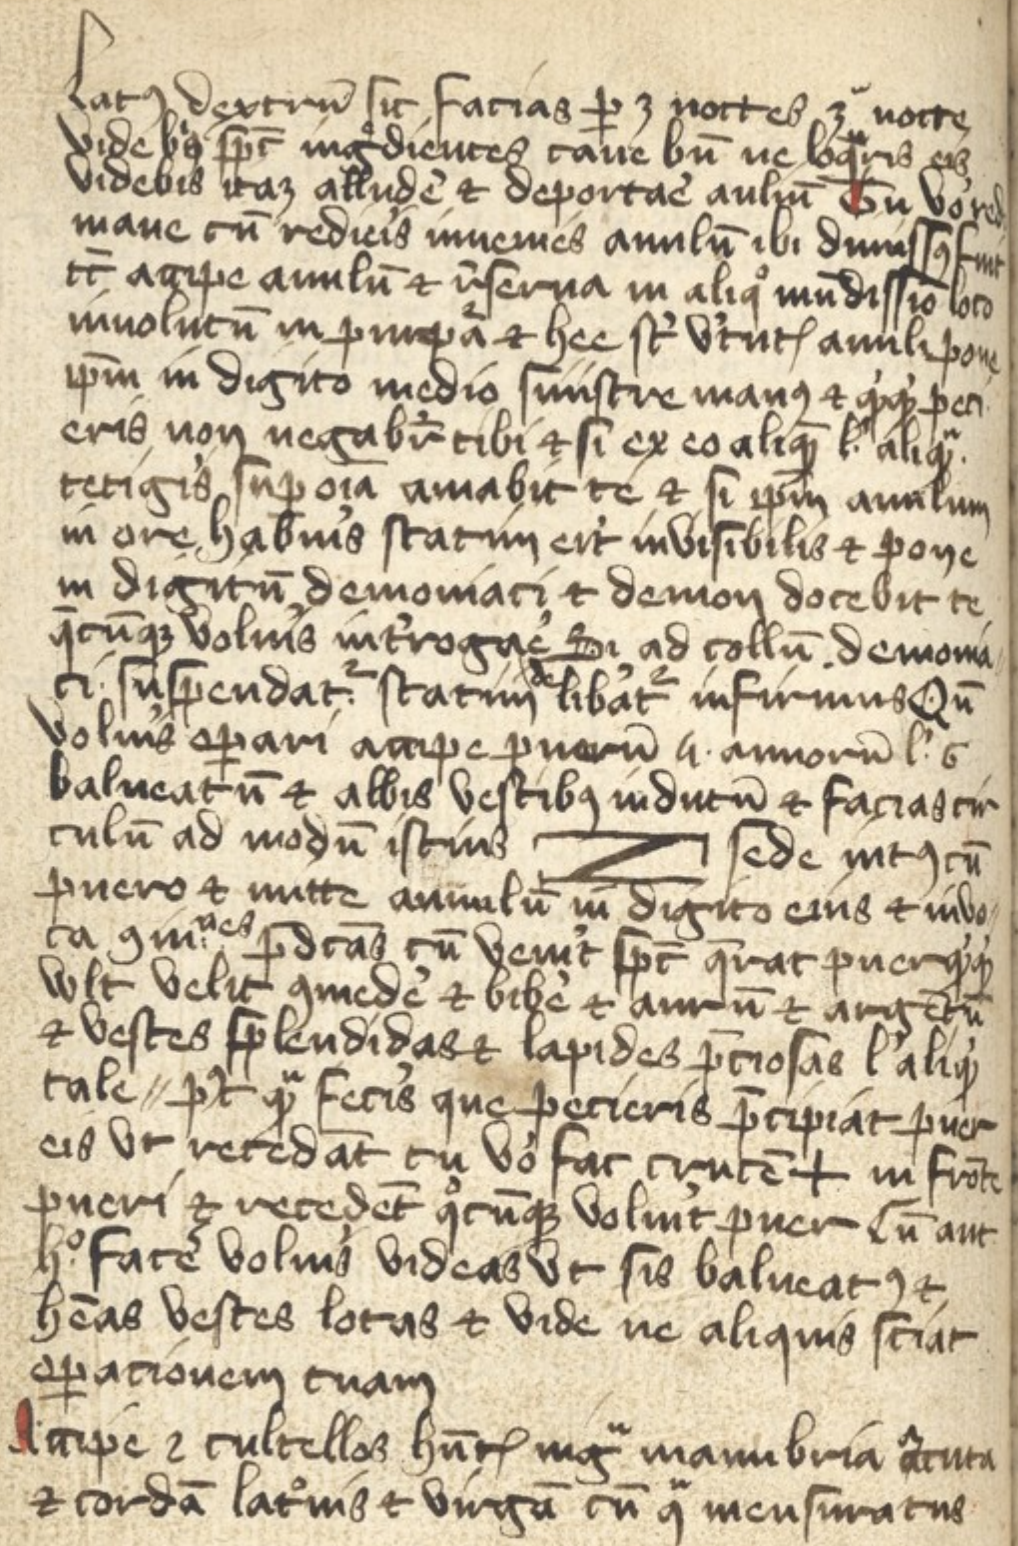 Latꝰ dextrū sic facias ꝑ 3 noctes 3ª nocte
videbis sp̄c ingͦdientes cave bn̄ ne loqͣris eis
videbis itaqꝫ alludē et deportaē anlum̄ Tu vo᾽ red
mane cū redieris invenies anulū ibi dimissꝰ fuit
tc̄ accipe anulū et r̄serua in aliqͦ mūdissīo loco
inuolutū in purpᷓa et hee st᷑ v᾽tutꝭ anuli pone
ip̄m in digito medio sinistre manꝰ et qͥqͥd peci
eris non negabr̄ tibi et si ex eo aliqͥd l᾽ aliqͣ
tetigis᾽ suꝑ oīa amabit te et si ip̄m anulum
in ore habuis᾽ statim erit invisibilis et pone
in digitū demoniaci et demon docebit te
q̄cūqꝫ volu᾽is int᾽rogaē Si ad collū demonia
ci suspendat᷑ statim delib᾽at᷑ infirmus Qn̄
volu᾽is oꝑari accipe puerū 4 annorū l᾽ 6
balneatū et albis vestibꝰ indutū et facias cir
culū ad modū istius sede intꝰ cū
puero et mitte annulū in digito eius et invo
ca ꝯiu᷑nes p̄dcās cū venīt sp̄c q̄rat puer qͥqͥd
vult velit ꝯmedē et bibē et aurū et argētū
et vestes splendidas et lapides p̄ciosas l᾽ aliqͥd
tale p᾽t qͣ fecis᾽ que pecieris p̄cipiat puer
eis vt recedāt tu vo᾽ fac crucē + in frōte
pueri et recedēt qͦcūqꝫ volu᾽it puer Cū aut
hͦ facē volu᾽is videas vt sis balneatꝰ et
hēas vestes lotas et vide ne aliquis sciat
oꝑacionem tuam
Accipe 2 cultellos hn̄tꝭ nigͣ manubria acuta
et cordā latͦnis et virgā cū qͣ mensuratus